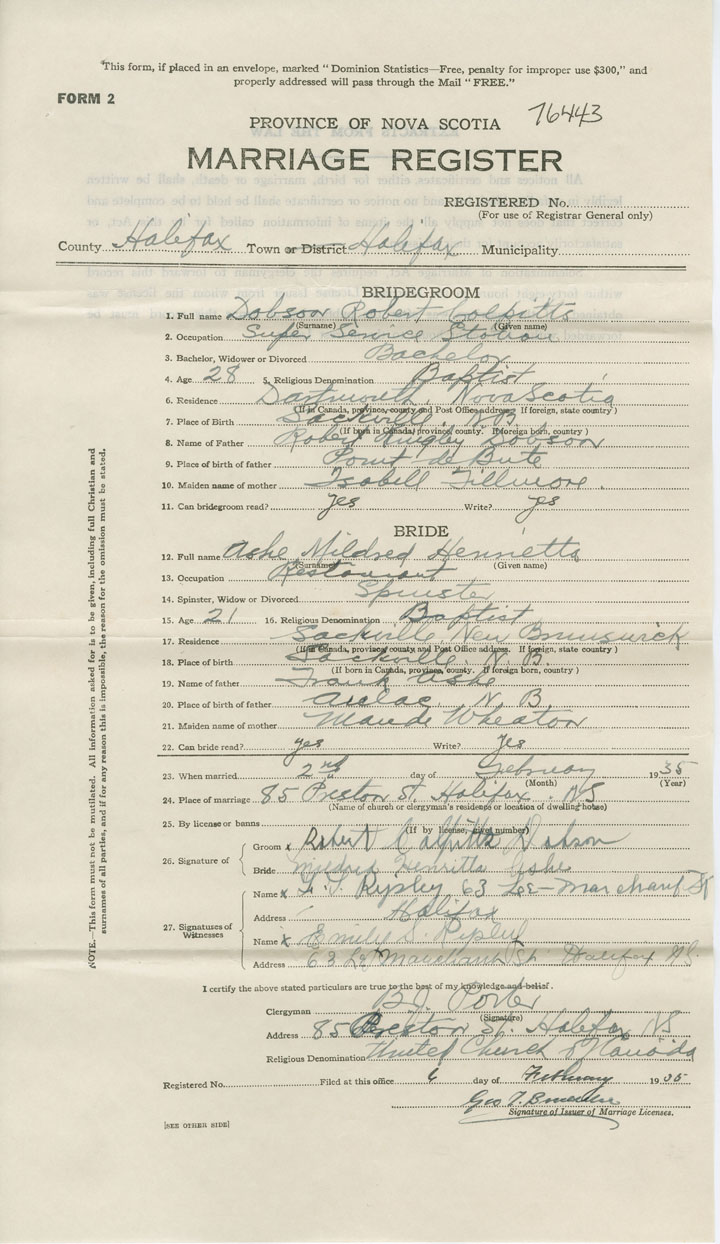 "This form, if placed in an envelope, marked "Dominion Statistics—Free, penalty for improper use $300," and
properly addressed will pass through the Mail "FREE."
FORM 2
76443
PROVINCE OF NOVA SCOTIA
MARRIAGE REGISTER
REGISTERED No.
(For use of Registrar General only)
County Halifax Town or District Halifax Municipality
BRIDEGROOM
1. Full name Dobson Robert Colpitts
(Surname) (Given name)
2. Occupation Super Service Station
3. Bachelor, Widower or Divorced Bachelor
4. Age 28 5. Religious Denomination Baptist
6. Residence Dartmouth, Nova Scotia
(If in Canada, province, county and Post Office address. If foreign, state country)
7. Place of Birth Sackville, N.B.
(If born in Canada, province, county. If foreign born, country)
8. Name of Father Robert Dobson
9. Place of birth of father Point de Bute
10. Maiden name of mother Isobell Fillmore.
11. Can bridegroom read? yes Write? yes
BRIDE
12. Full name Ashe Mildred Henrietta
(Surname) (Given name)
13. Occupation Restaurant
14. Spinster, Widow or Divorced Spinster
15. Age 21 16. Religious Denomination Baptist
17. Residence Sackville, New Brunswick
(If in Canada, province, county and Post Office address. If foreign, state country)
18. Place of birth Sackville. N. B.
(If born in Canada, province, county. If foreign born, country)
19. Name of father Frank Ashe
20. Place of birth of father Aulac, N. B.
21. Maiden name of mother Maude Wheaton
22. Can bride read? yes Write? yes
23. When married 2nd day of February 1935
(Month) (Year)
24. Place of marriage 85 Preston St. Halifax. NS
(Name of church or clergyman's residence or location of dwelling house)
25. By license or banns
(If by license, give number)
26. Signature of
Groom x Robert Colpitts Dobson
Bride Mildred Henrietta Ashe
27. Signatures of Witnesses
Name x F. T. Ripley, 63 Le-Marchant St
Address Halifax
Name x Emily S. Ripley
Address 63 Le Marchant St. Halifax N.S.
I certify the above stated particulars are true to the best of my knowledge and belief.
Clergyman B.J. Porter
(Signature)
Address 85 Preston St. Halifax, NS
Religious Denomination United Church of Canada
Registered No. Filed at this office 6 day of February 1935
Geo T.
Signature of Issuer of Marriage Licenses.
[SEE OTHER SIDE]
NOTE.—This form must not be mutilated. All information asked for is to be given, including full Christian and
surnames of all parties, and if for any reason this is impossible, the reason for the omission must be stated.